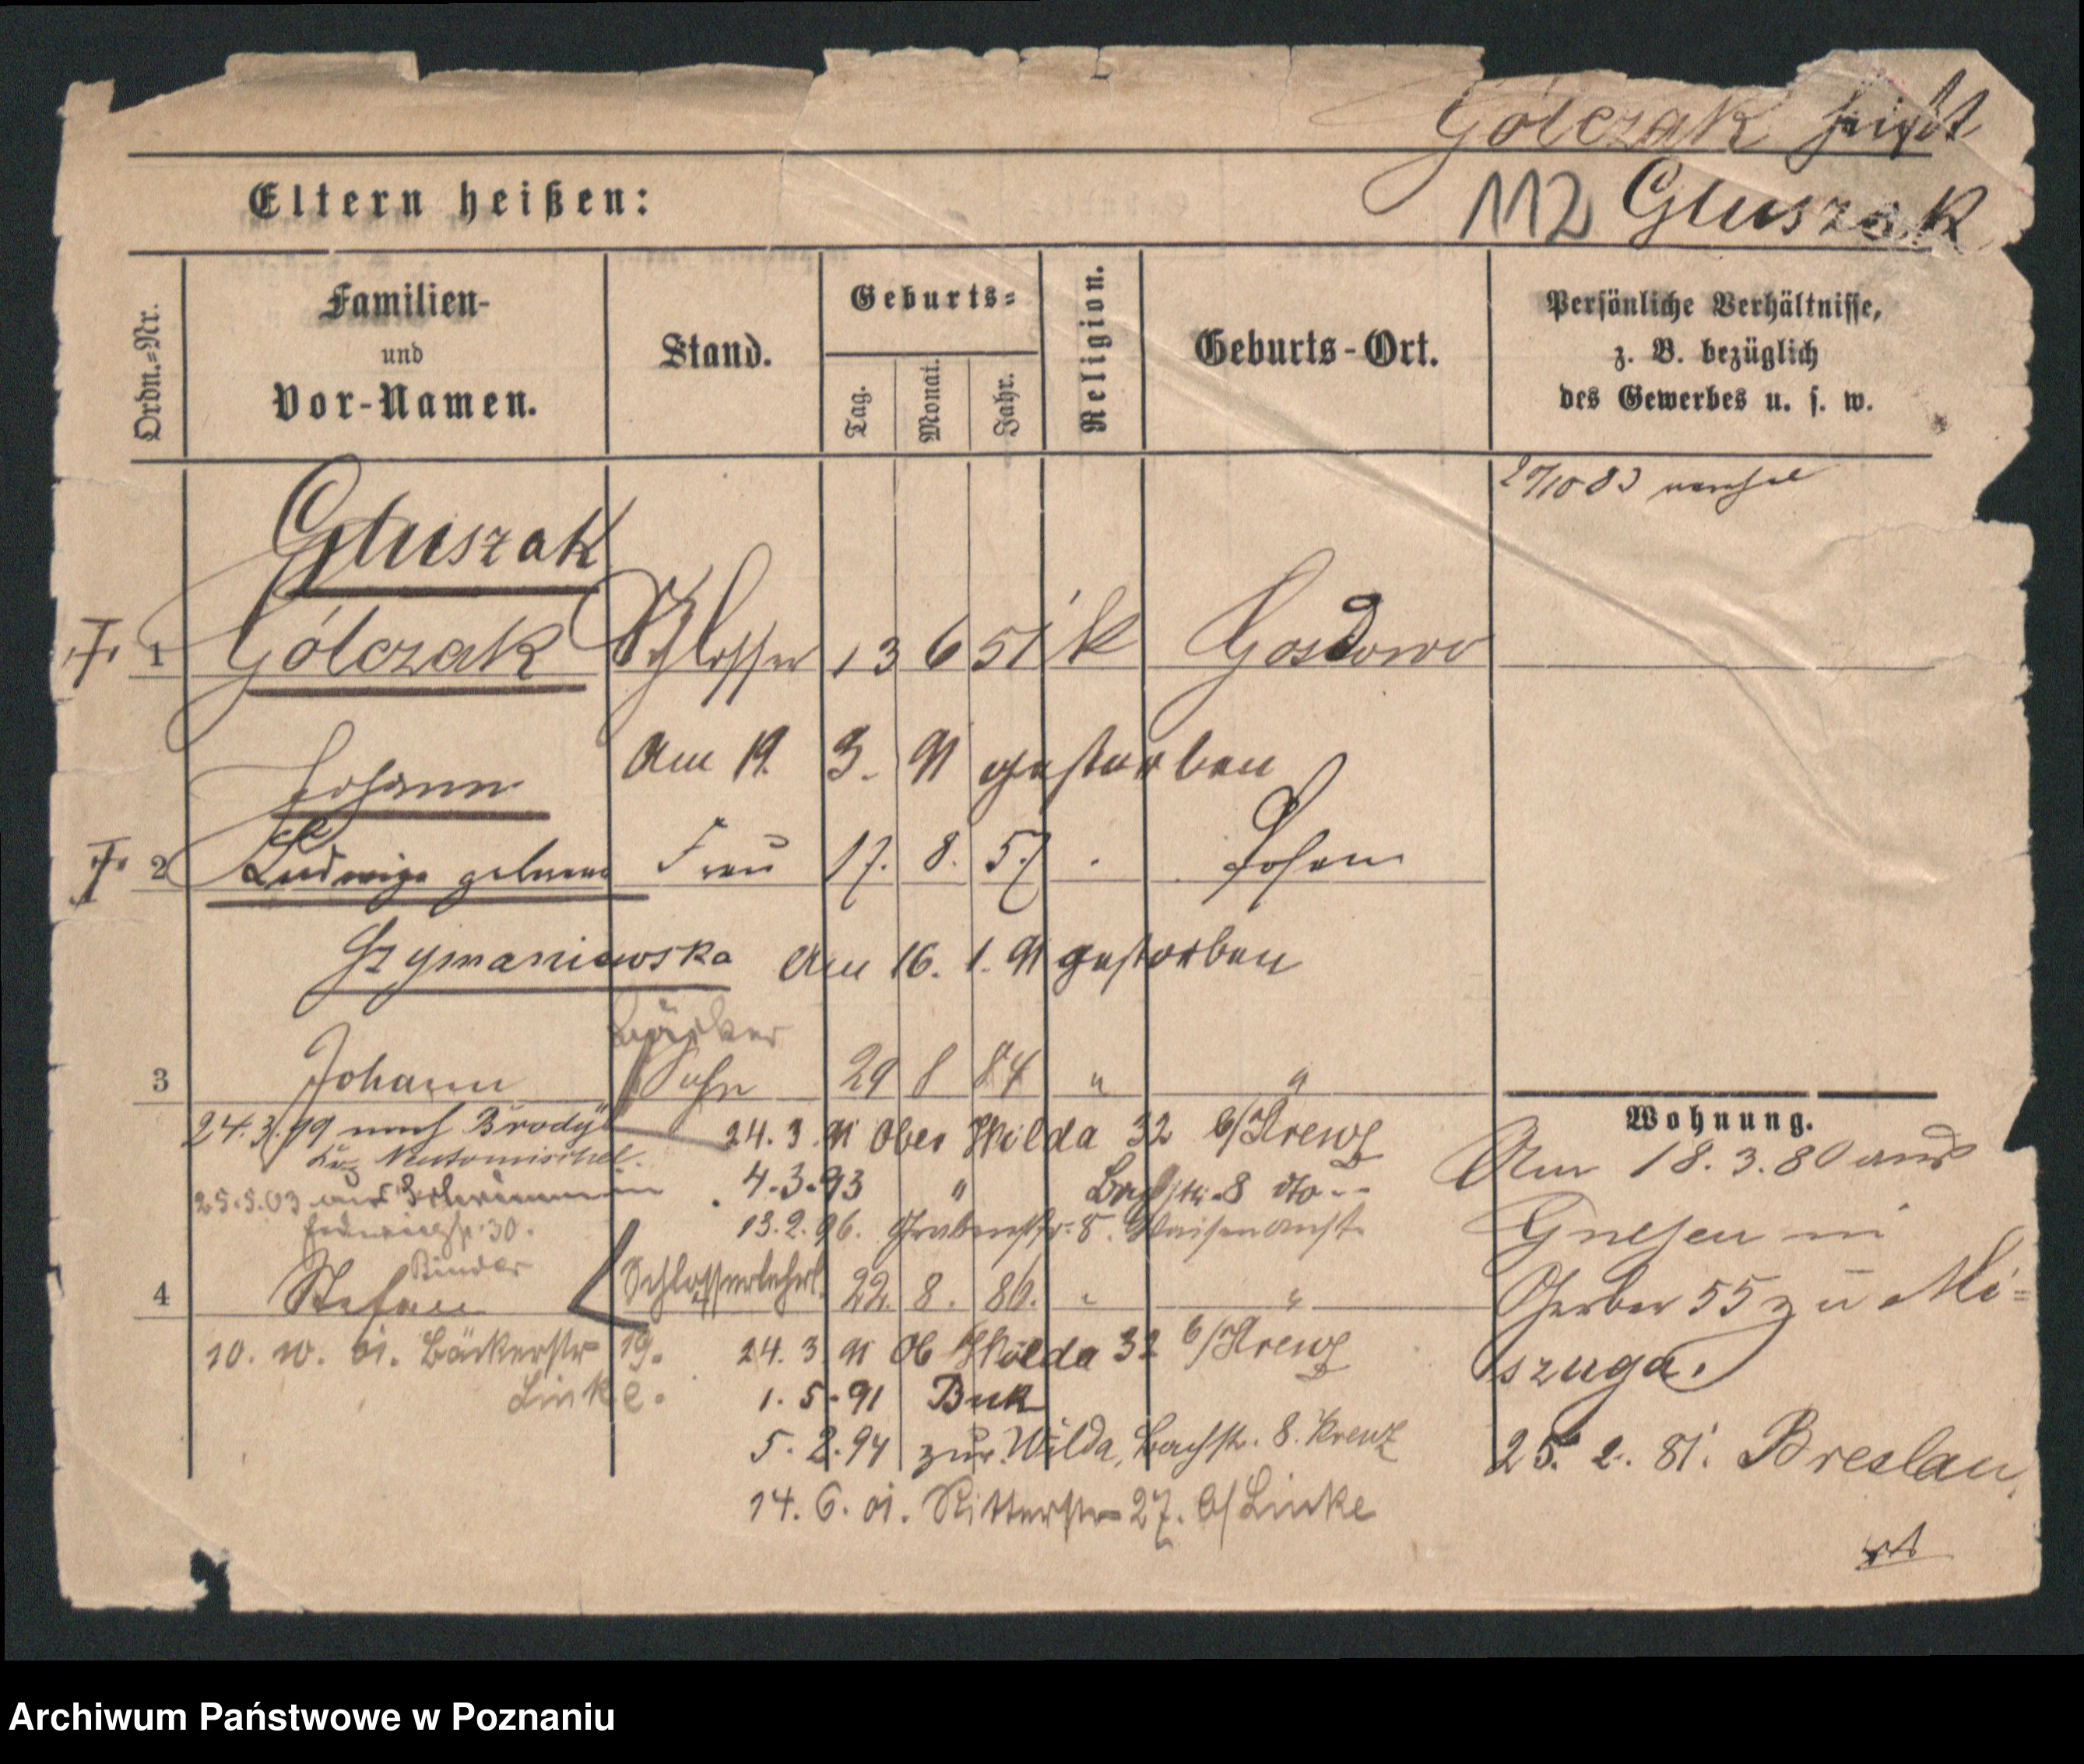 Gólczak heißt
Eltern heißen:
112 Gluszak
Ordn.-Nr.
Familien-
und
Vor-Namen.
Stand.
Geburts-
Tag.
Monat.
Jahr.
Religion.
Geburts-Ort.
Persönliche Verhältnisse,
z. B. bezüglich
des Gewerbes u. s. w.
Gluszak
1 Gólczak Schlosser 13 6 51 k Gosdowo
Johann
Am 19. 3. 91 gestorben
2 Ludwiga geborene Frau 17. 8. 57 Posen
Szymaniewska Am 16. 1. 91 gestorben
3 Johann Sohn 29 8 84 " "
24.3.99 nach Brody
24. 3. 91 Ober Wilda 32 b/Krenz
Neutomischel.
4.3.93 " Bachstr. 8 dto
25.5.03 aus
13. 2. 96. Grabenstr. 8. Waisenanst.
30.
4 Stefan Schlosserlehrl. 22. 8. 86. " "
10. 10. 01. Bäckerstr 19.
Linke.
24. 3. 91 Ob Wilda 32 b/Krenz
1. 5. 91 Buk
5. 2. 94 zur Wilda, Bachstr. 8. Krenz
14. 6. 01. Ritterstr 27. b/Linke
Wohnung.
Am 18. 3. 80 aus
Gnesen in
Gerber 55 zu Mi-
szuga.
25. 2. 81. Breslau.
Archiwum Państwowe w Poznaniu